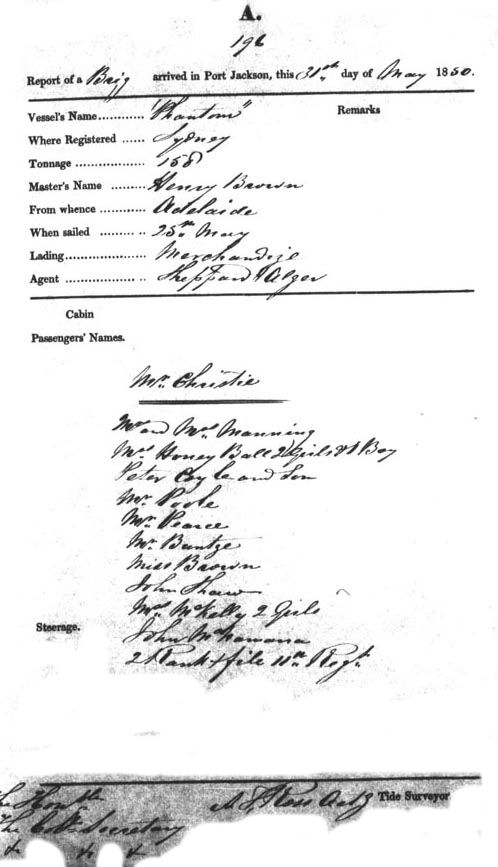 A.
196
Report of a Brig arrived in Port Jackson, this 31st day of May 1850.
Vessel's Name............ "Phantom" Remarks
Where Registered ...... Sydney
Tonnage .................. 158
Master's Name ......... Henry Brown
From whence ............ Adelaide
When sailed ......... .. 25th May
Lading..................... Merchandize
Agent .................. .. Sheppard & Alger
Cabin
Passengers' Names.
Mr. Christie
Mr and Mrs Manning
Mrs Honey Ball 2 Girls & 1 Boy
Peter Coyle and Son
Mr. Poole
Mr. Pearce
Mr. Buntze
Miss Brown
John Shaw
Mrs McKelly 2 Girls
Steerage.
John McNamara
2 Rank & file 11th Regt.
A S Ross Actg Tide Surveyor
The Honble
The Col. Secretary
& & &